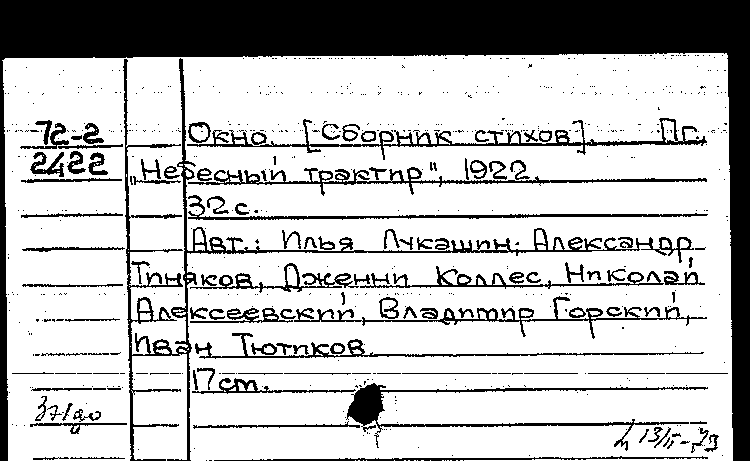 72-2
2422
Окно. [Сборник стихов]. Пг.,
„Небесный трактир", 1922.
32 с.
Авт.: Илья Лукашин; Александр
Тиняков, Дженни Коллес, Николай
Алексеевский, Владимир Горский,
Иван Тютиков.
17 см.
13/II-73